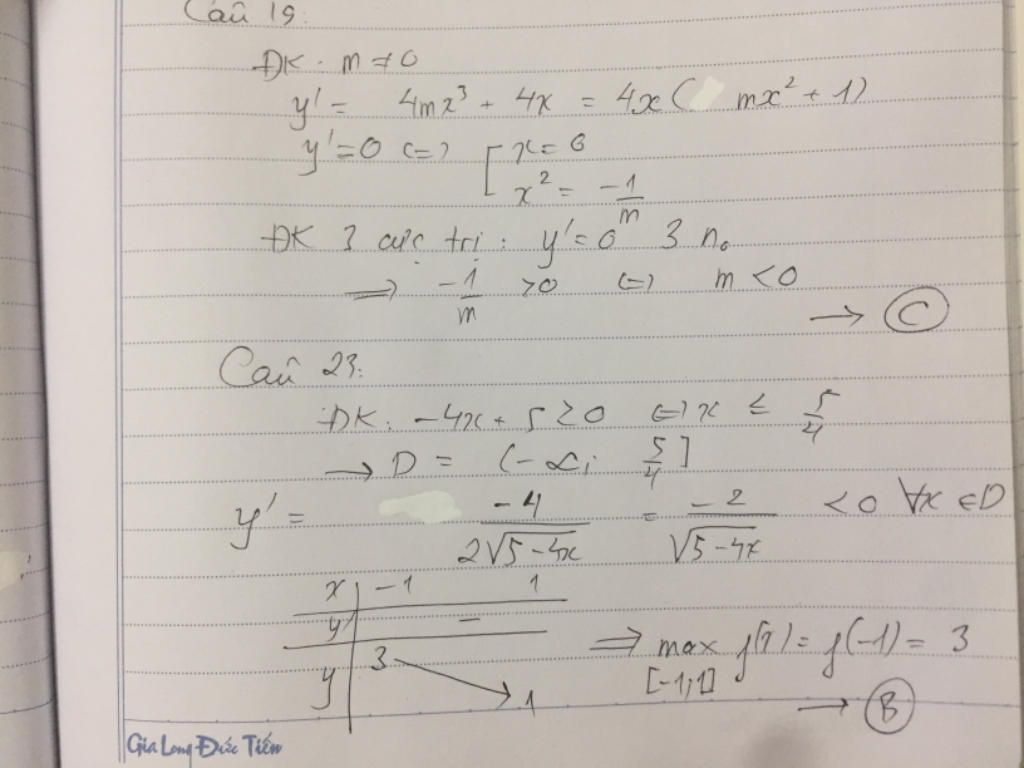 Câu 19:
ĐK: m ≠ 0
y' = 4mx³ + 4x = 4x( mx² + 1)
y' = 0 (=) [ x = 0
x² = -1/m
ĐK 3 cực trị: y' = 0 3 n₀
=> -1/m > 0 (=) m < 0
→ C
Câu 23:
ĐK: -4x + 5 ≥ 0 (=) x ≤ 5/4
→ D = (-∞; 5/4]
y' = -4/(2√(5-4x)) = -2/√(5-4x) < 0 ∀x ∈ D
x -1 1
y' -
y 3 1
=> max f(x) = f(-1) = 3
[-1;1]
→ B
Gia Long Đức Tiến